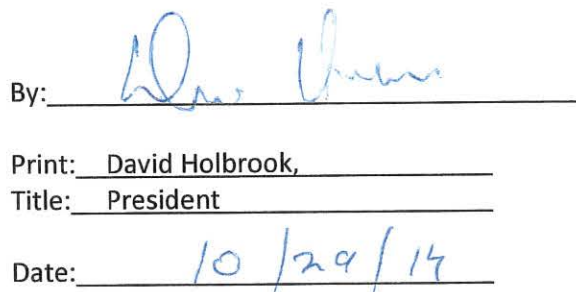 By:
Print: David Holbrook,
Title: President
Date: 10/29/14